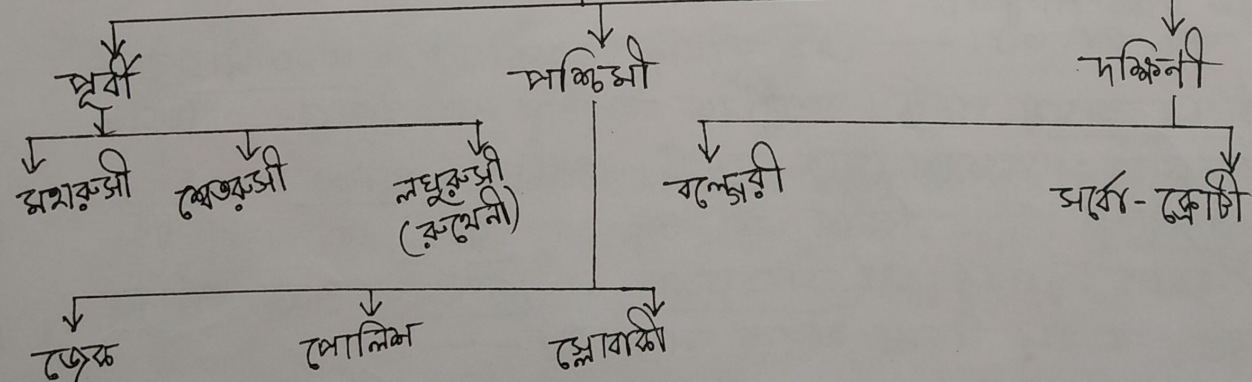 পূর্বী
পশ্চিমী
দক্ষিনী
মহারুসী
শ্বেতরুসী
লঘুরুসী
(রুথেনী)
বলগেরী
সর্বো-ক্রোটী
চেক
পোলিশ
স্লোবাকী